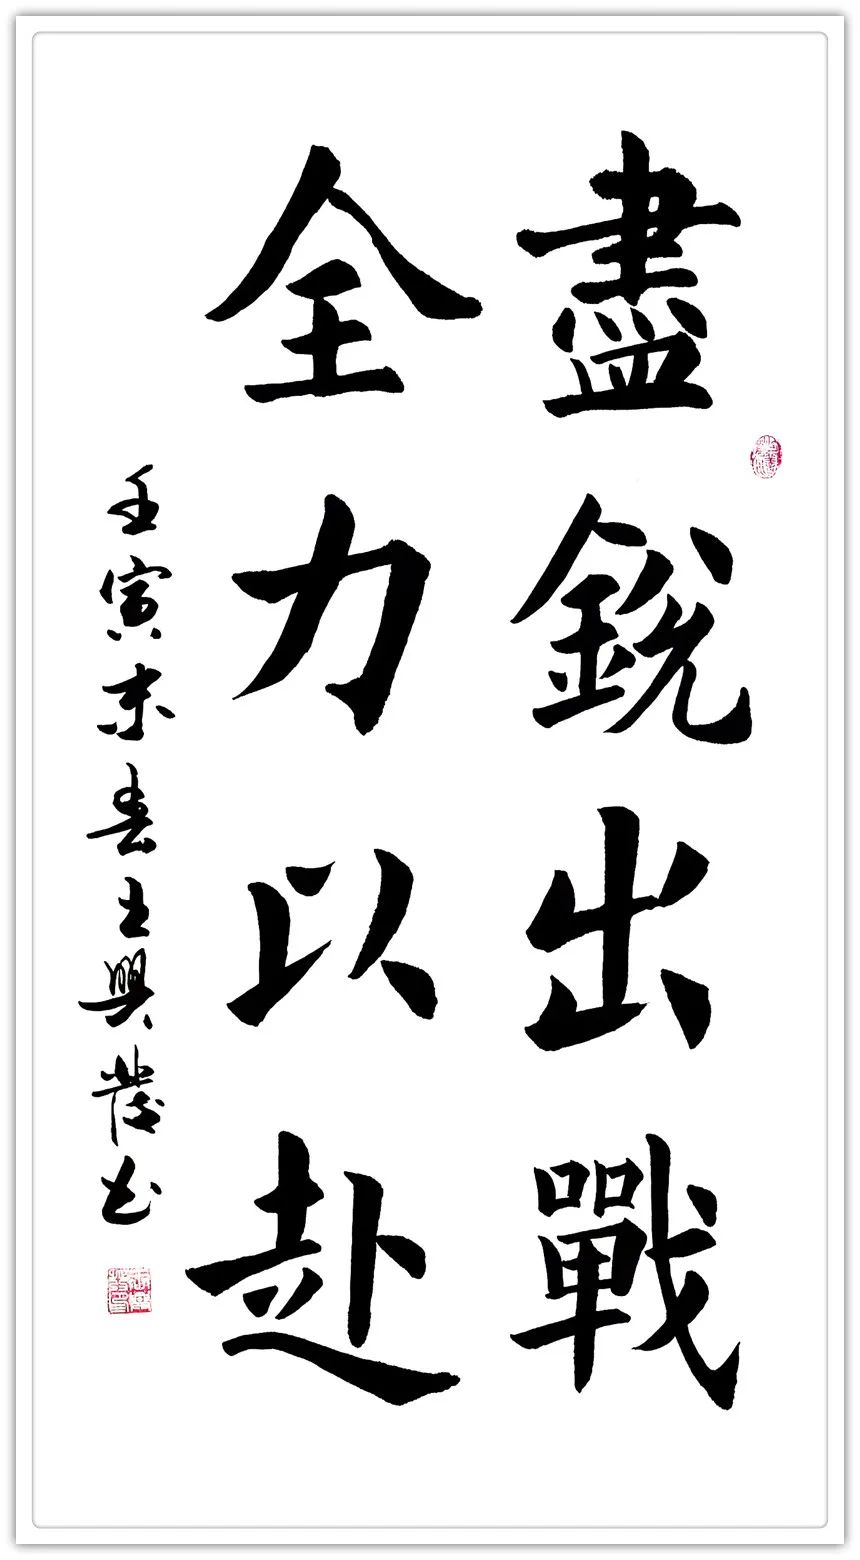 盡銳出戰
全力以赴
壬寅末春王興發书